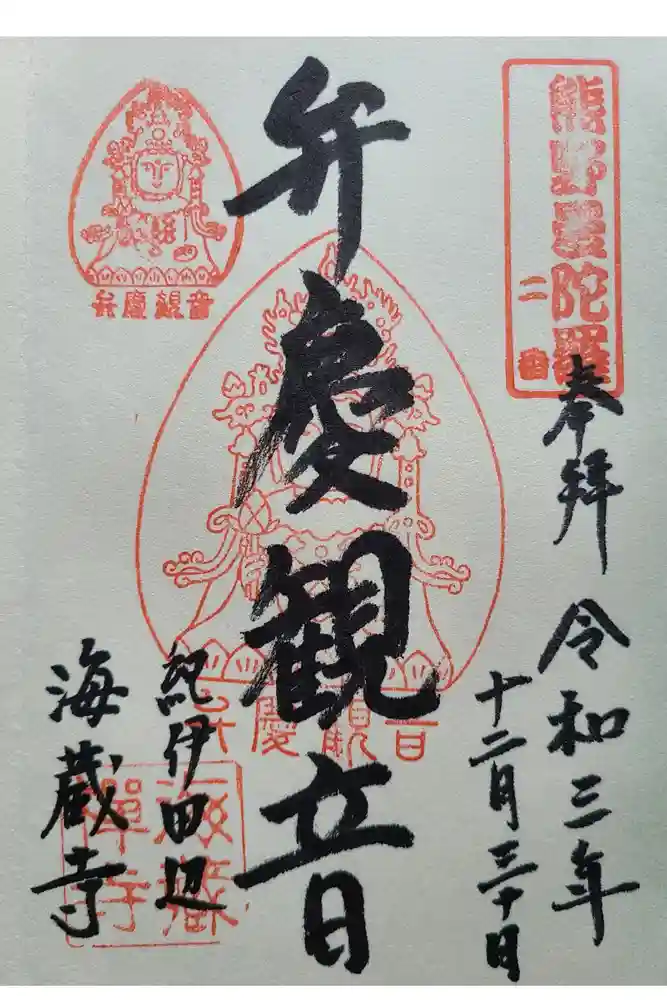 熊野曼陀羅
二番
奉拝 令和三年
十二月三十日
弁慶観音
弁慶観音
弁慶観音
紀伊田辺
海蔵寺
海蔵禅寺